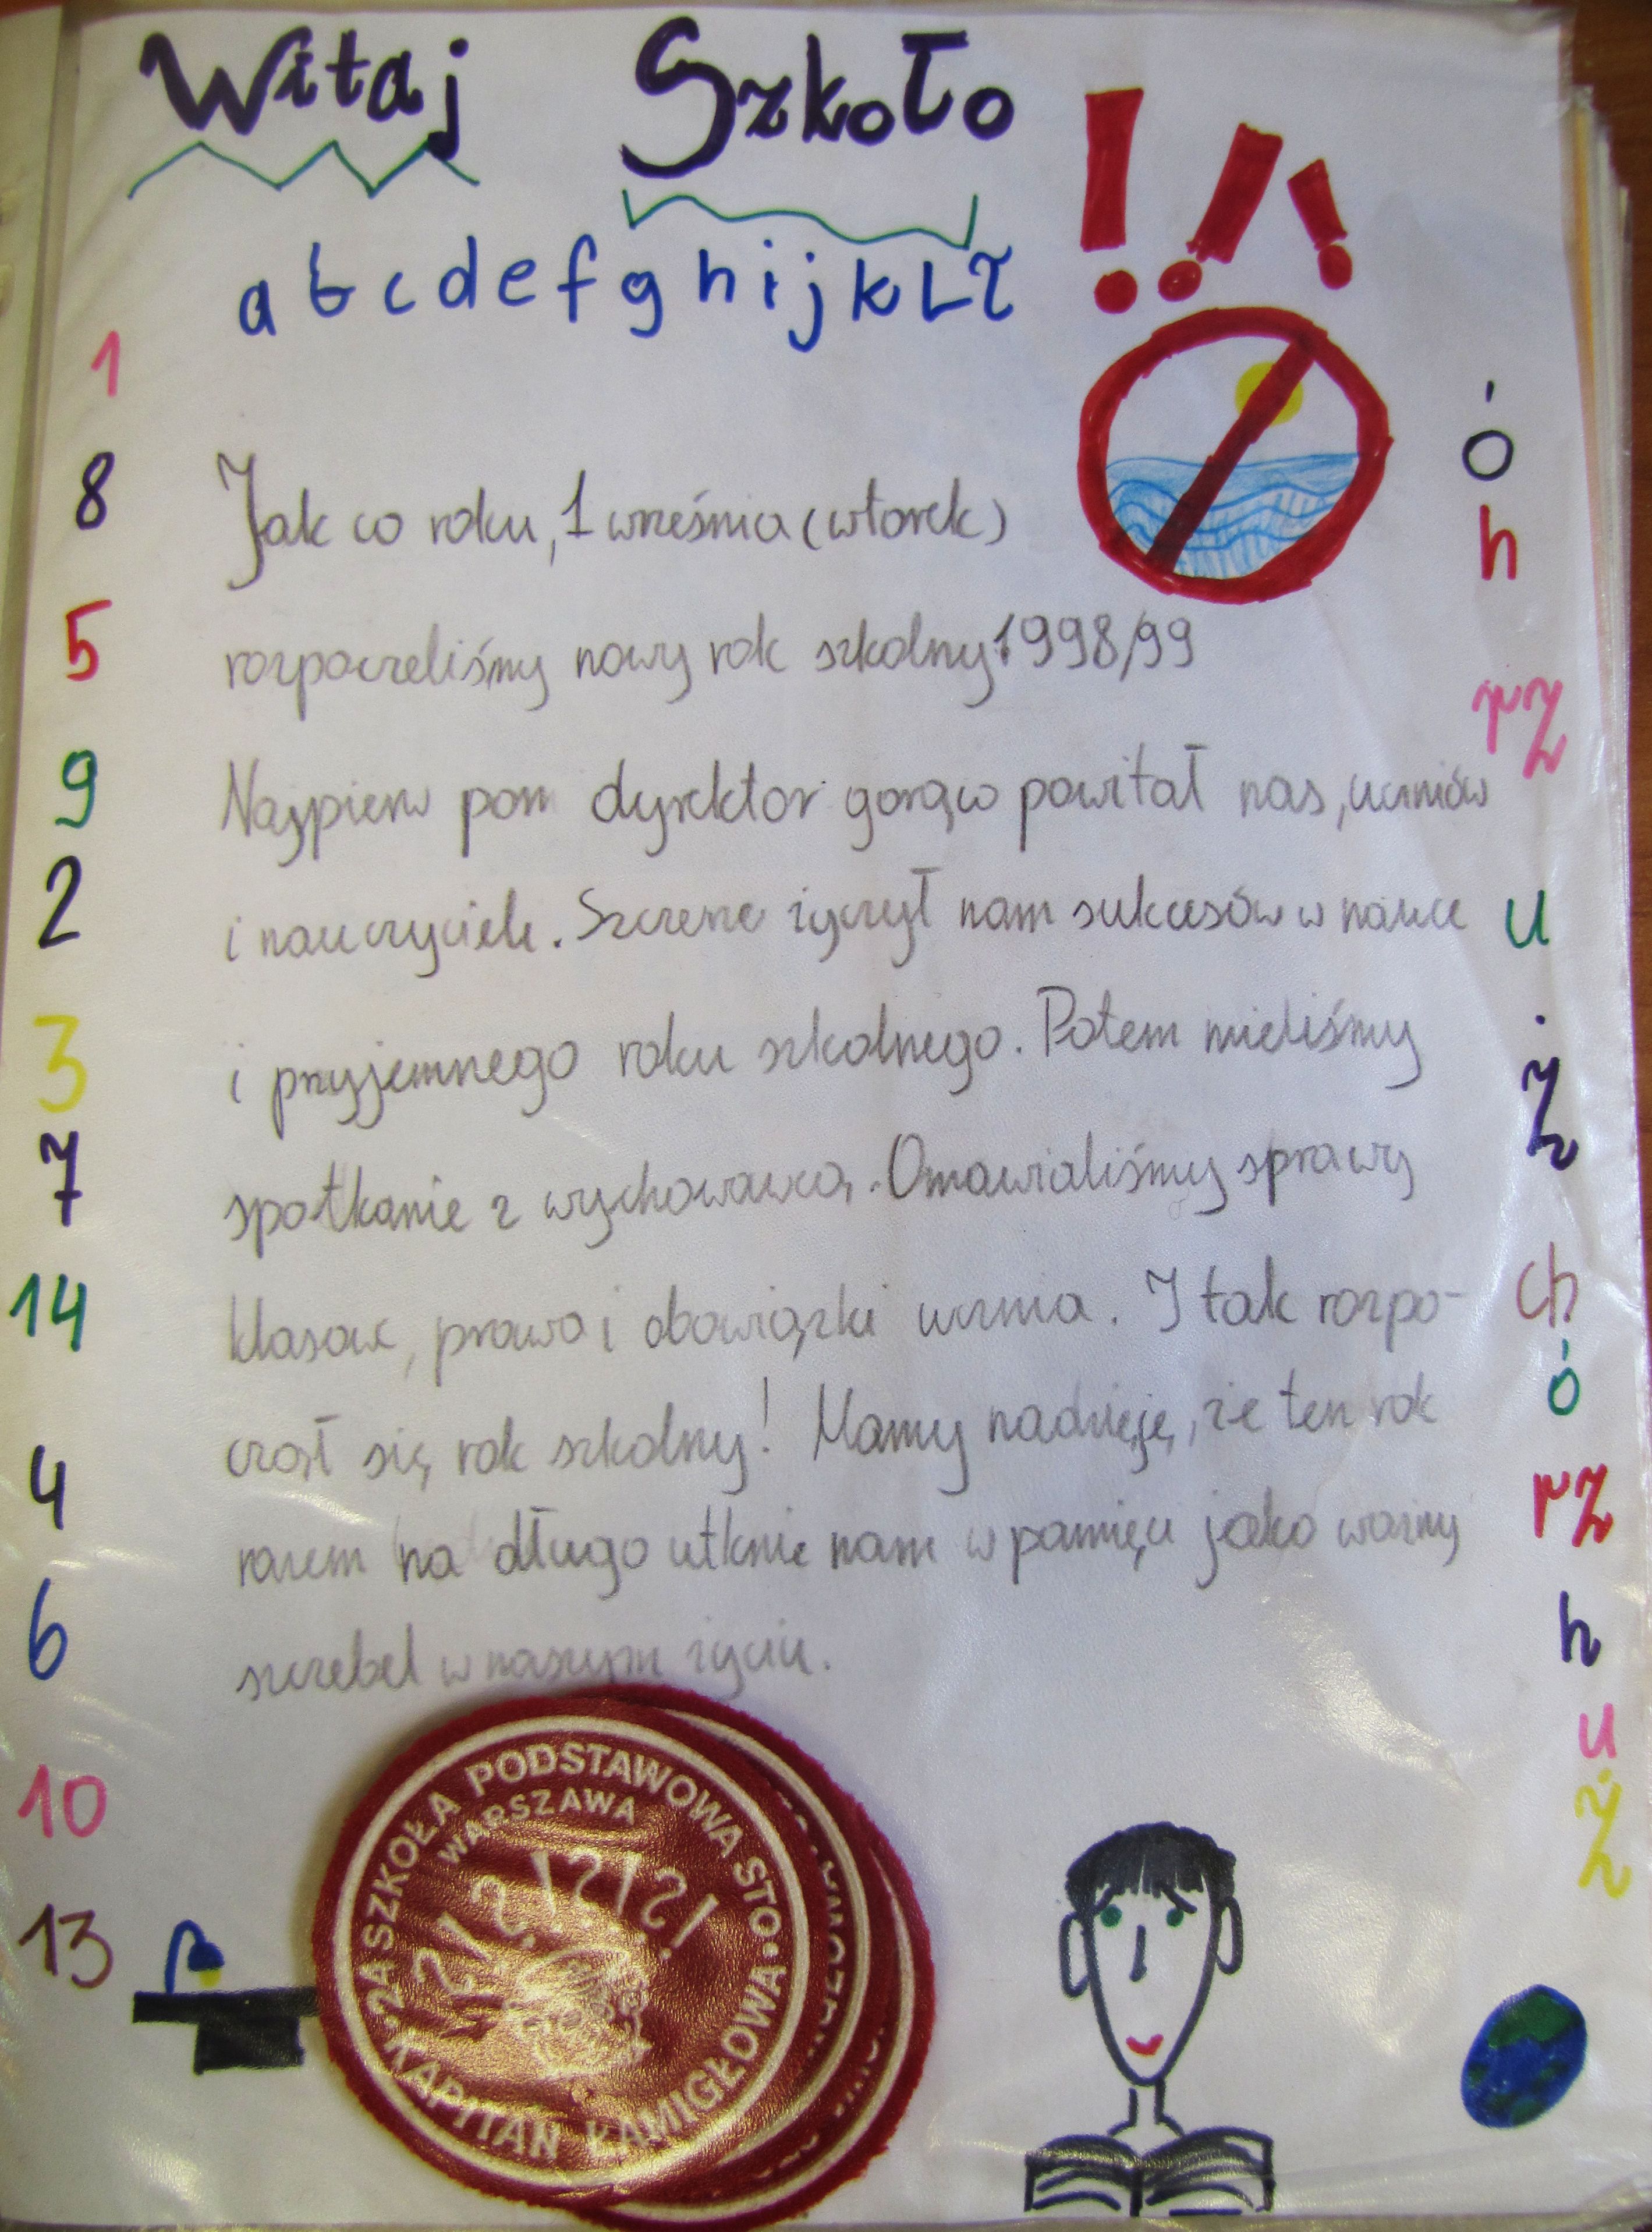 Witaj Szkoło !!!
a b c d e f g h i j k L ł
1
8
5
9
2
3
7
14
4
6
10
13
Jak co roku, 1 września (wtorek)
rozpoczeliśmy nowy rok szkolny 1998/99
Najpierw pan dyrektor gorąco powitał nas, uczniów
i nauczycieli. Szczerze życzył nam sukcesów w nauce
i przyjemnego roku szkolnego. Potem mieliśmy
spotkanie z wychowawcą. Omawialiśmy sprawy
klasowe, prawa i obowiązki ucznia. I tak rozpo-
czął się rok szkolny! Mamy nadzieję, że ten rok
razem na długo utknie nam w pamięci jako ważny
szczebel w naszym życiu.
ó
h
rz
u
ż
ch
ó
rz
h
u
ż
2A SZKOŁA PODSTAWOWA STO.
WARSZAWA
?!?!?!?!?!
KAPITAN KAMIGŁOWA